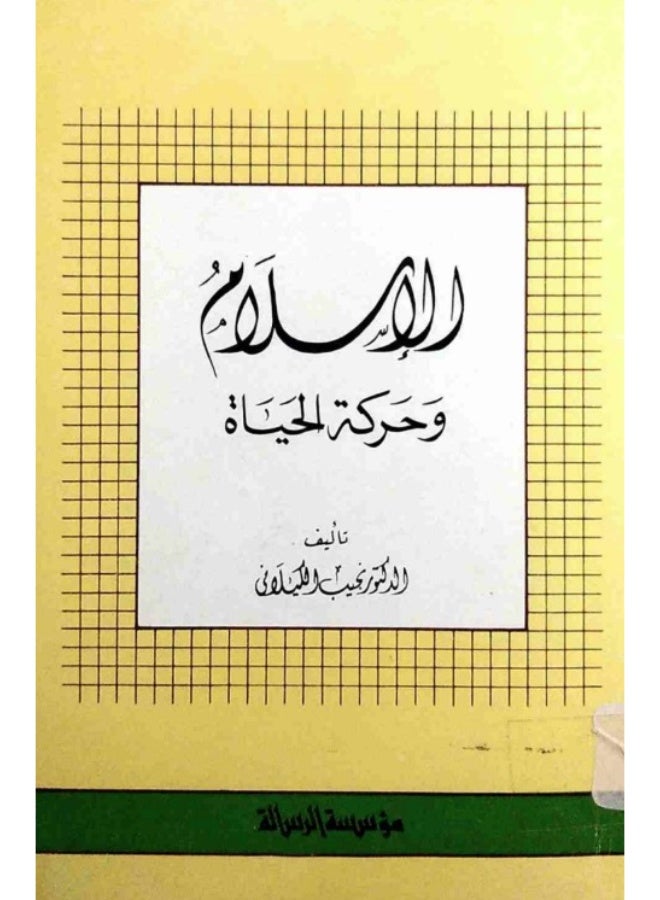 الإسلَامُ
وَحَركة الحَيَاة
تأليف
الدكتور نجيب الكيلاني
مؤسسة الرسالة